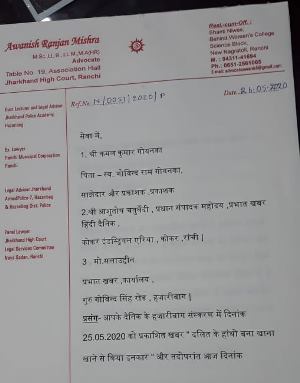 Awanish Ranjan Mishra
M.Sc.,LL.B.,LL.M.,M.A(HR)
Advocate
Table No. 19, Association Hall
Jharkhand High Court, Ranchi
Resi.-cum-Off.:
Shanti Niwas,
Behind Women's College
Science Block,
New Nagratoli, Ranchi
M. : 94311-41664
Ph.: 0651-2561065
Ref.No.
Date. 26.05.2020
Guest Lecturer and Legal Advisor
Jharkhand Police Academy
Hazaribag
Ex. Lawyer
Ranchi Municipal Corporation
Ranchi
Legal Advisor Jharkhand
Armed Police 7, Hazaribag
& Recruiting Dist. Police
Panel Lawyer
Jharkhand High Court
Legal Services Committee
Nyay Sadan, Ranchi
सेवा में,
1. श्री कमल कुमार गोयनका
पिता – स्व. गोविन्द राम गोयनका,
साझेदार और प्रकाशक ,प्रकाशक
2.श्री आशुतोष चतुर्वेदी , प्रधान संपादक महोदय ,प्रभात खबर
हिंदी दैनिक ,
कोकर इंडस्ट्रियल एरिया , कोकर ,राँची |
3 . मो.सलाउद्दीन
प्रभात खबर ,कार्यालय ,
गुरु गोविन्द सिंह रोड , हजारीबाग |
प्रसंग- आपके दैनिक के हजारीबाग संस्करण में दिनांक
25.05.2020 को प्रकाशित खबर " दलित के हांथों बना खाना
खाने से किया इनकार " और तदोपरांत आज दिनांक